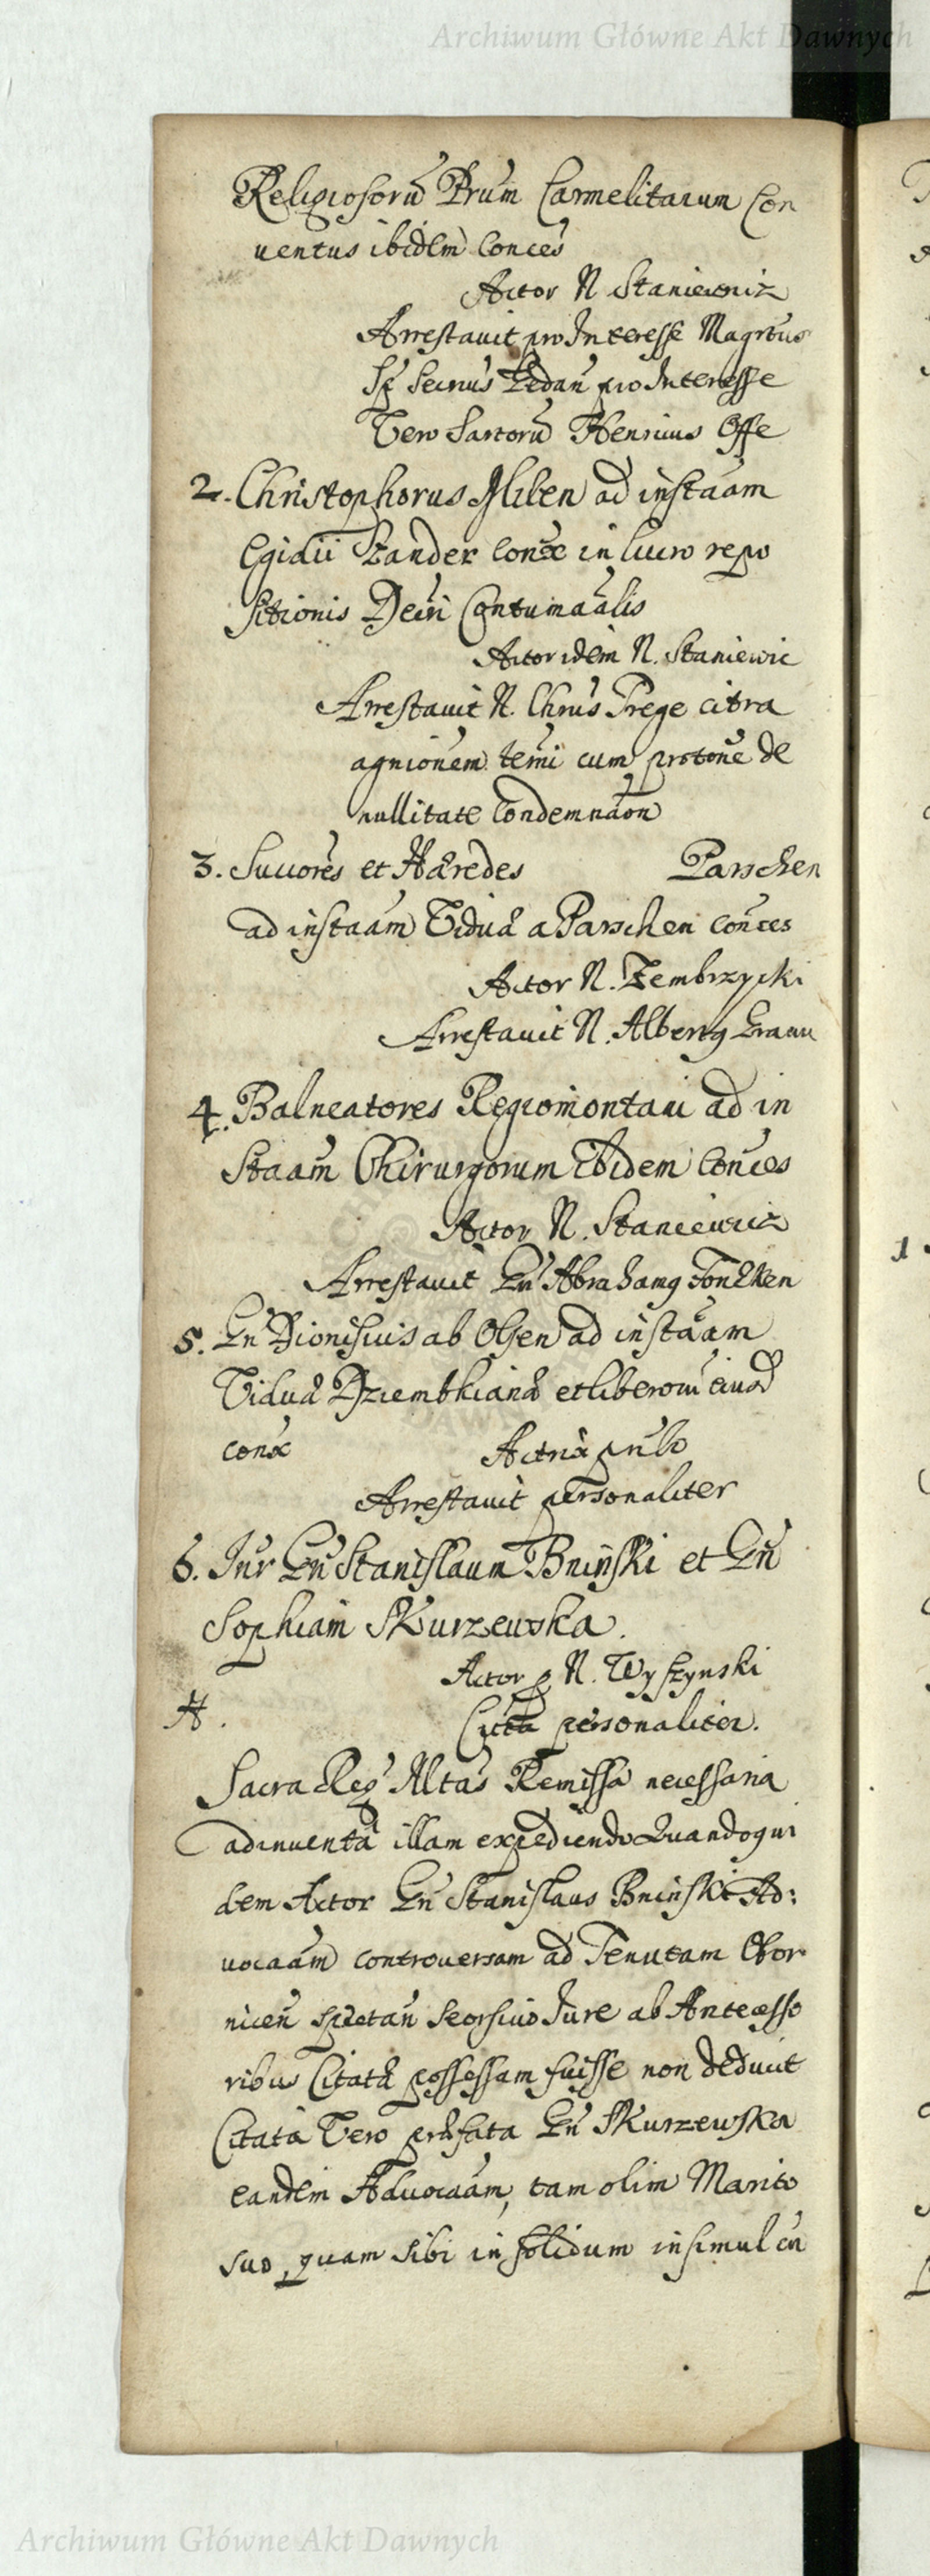 Archiwum Główne Akt Dawnych
Religiosorũ Prum Carmelitarum Con
uentus ibidem Conces
Actor N Staniewicz
Arrestauit pro Interesse Magrtus
Sp Secrius Gedan pro Interesse
Vero Sartorũ Henricus Offe
2. Christophorus Ihlben ad instaam
Egidii Zander Conce in lucro repo
sitionis Decri Contumaalis
Actor idem N. Staniewic
Arrestauit N. Chrus Prege citra
agnionem temi cum protone de
nullitate Condemnaon
3. Succores et Hæredes Parschen
ad instaam Viduæ a Parschen Conces
Actor N. Zembrzycki
Arrestauit N. Albertg Graaw
4. Balneatores Regiomontani ad in
staam Chirurgorum Ibidem Conces
Actor N. Staniewicz
Arrestauit Gn Abrahamg Tonkken
5. Gn Dionisius ab Olsen ad instaam
Viduæ Dziembkianæ et liberorũ eiusd
conce Actrix p nulo
Arrestauit personaliter
6. Inr Gn Stanislaum Bninski et Gn
Sophiam Skurzewska.
Actor p N. Wyszynski
A. Citta personaliter.
Sacra Reg Mltas Remissa necessaria
adinuenta illam expediendo Quandoqui
dem Actor Gn Stanislaus Bninski Ad:
uocaam controuersam ad Tenutam Obor
nicen spectan seorsiuo Iure ab Antecesso
ribus Citatæ possessam fuisse non deduxit
Citata Vero præfata Gn Skurzewska
eandem Aduocaam, tam olim Marito
suo, quam sibi in solidum insimul cn
Archiwum Główne Akt Dawnych